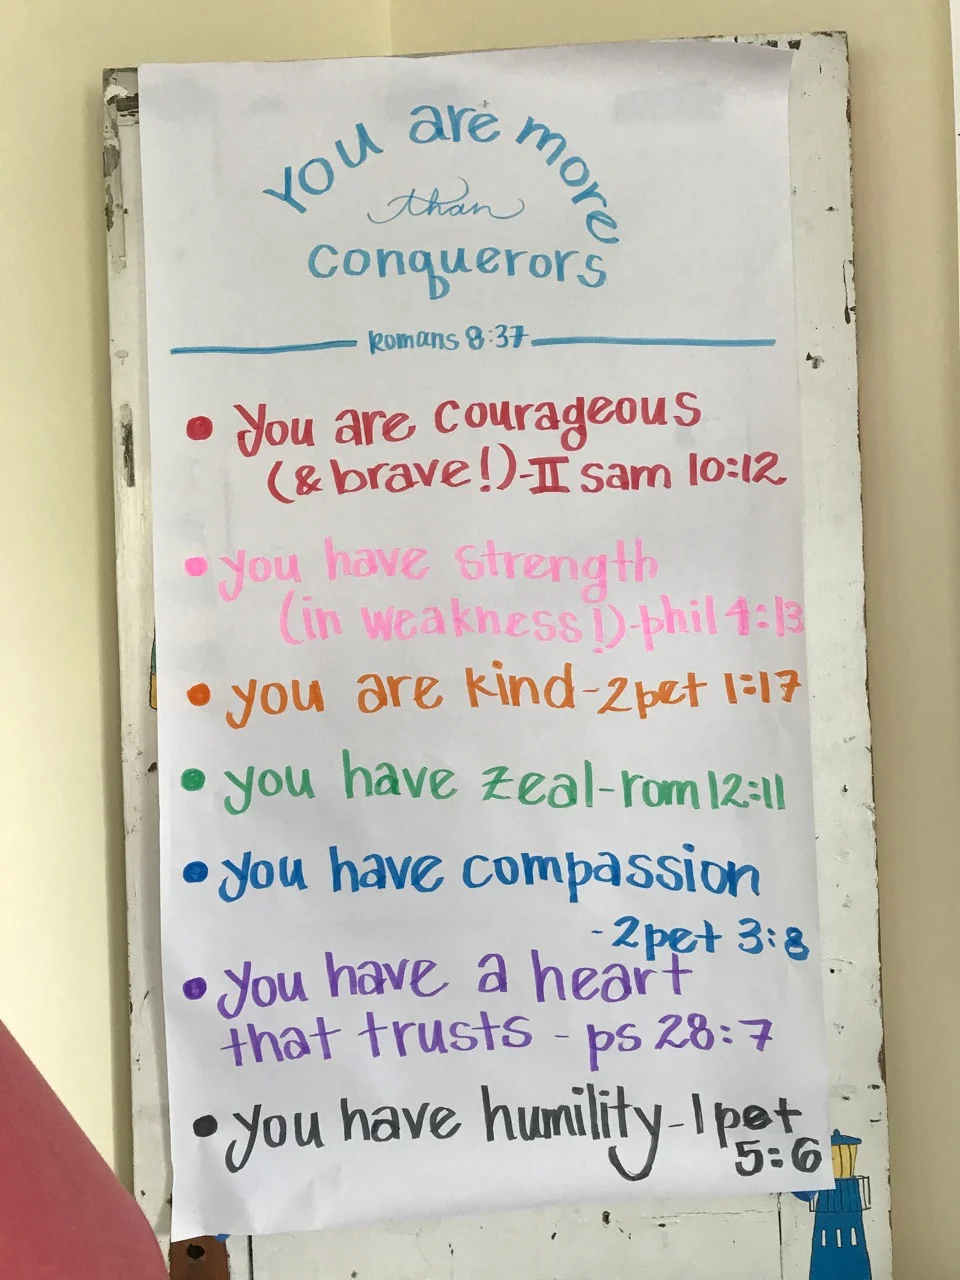 You are more
than
conquerors
Romans 8:37
• you are courageous
(& brave!)-II sam 10:12
• you have strength
(in weakness!)-phil 4:13
• you are kind-2pet 1:17
• you have zeal-rom 12:11
• you have compassion
-2pet 3:8
• you have a heart
that trusts - ps 28:7
• you have humility-1pet
5:6